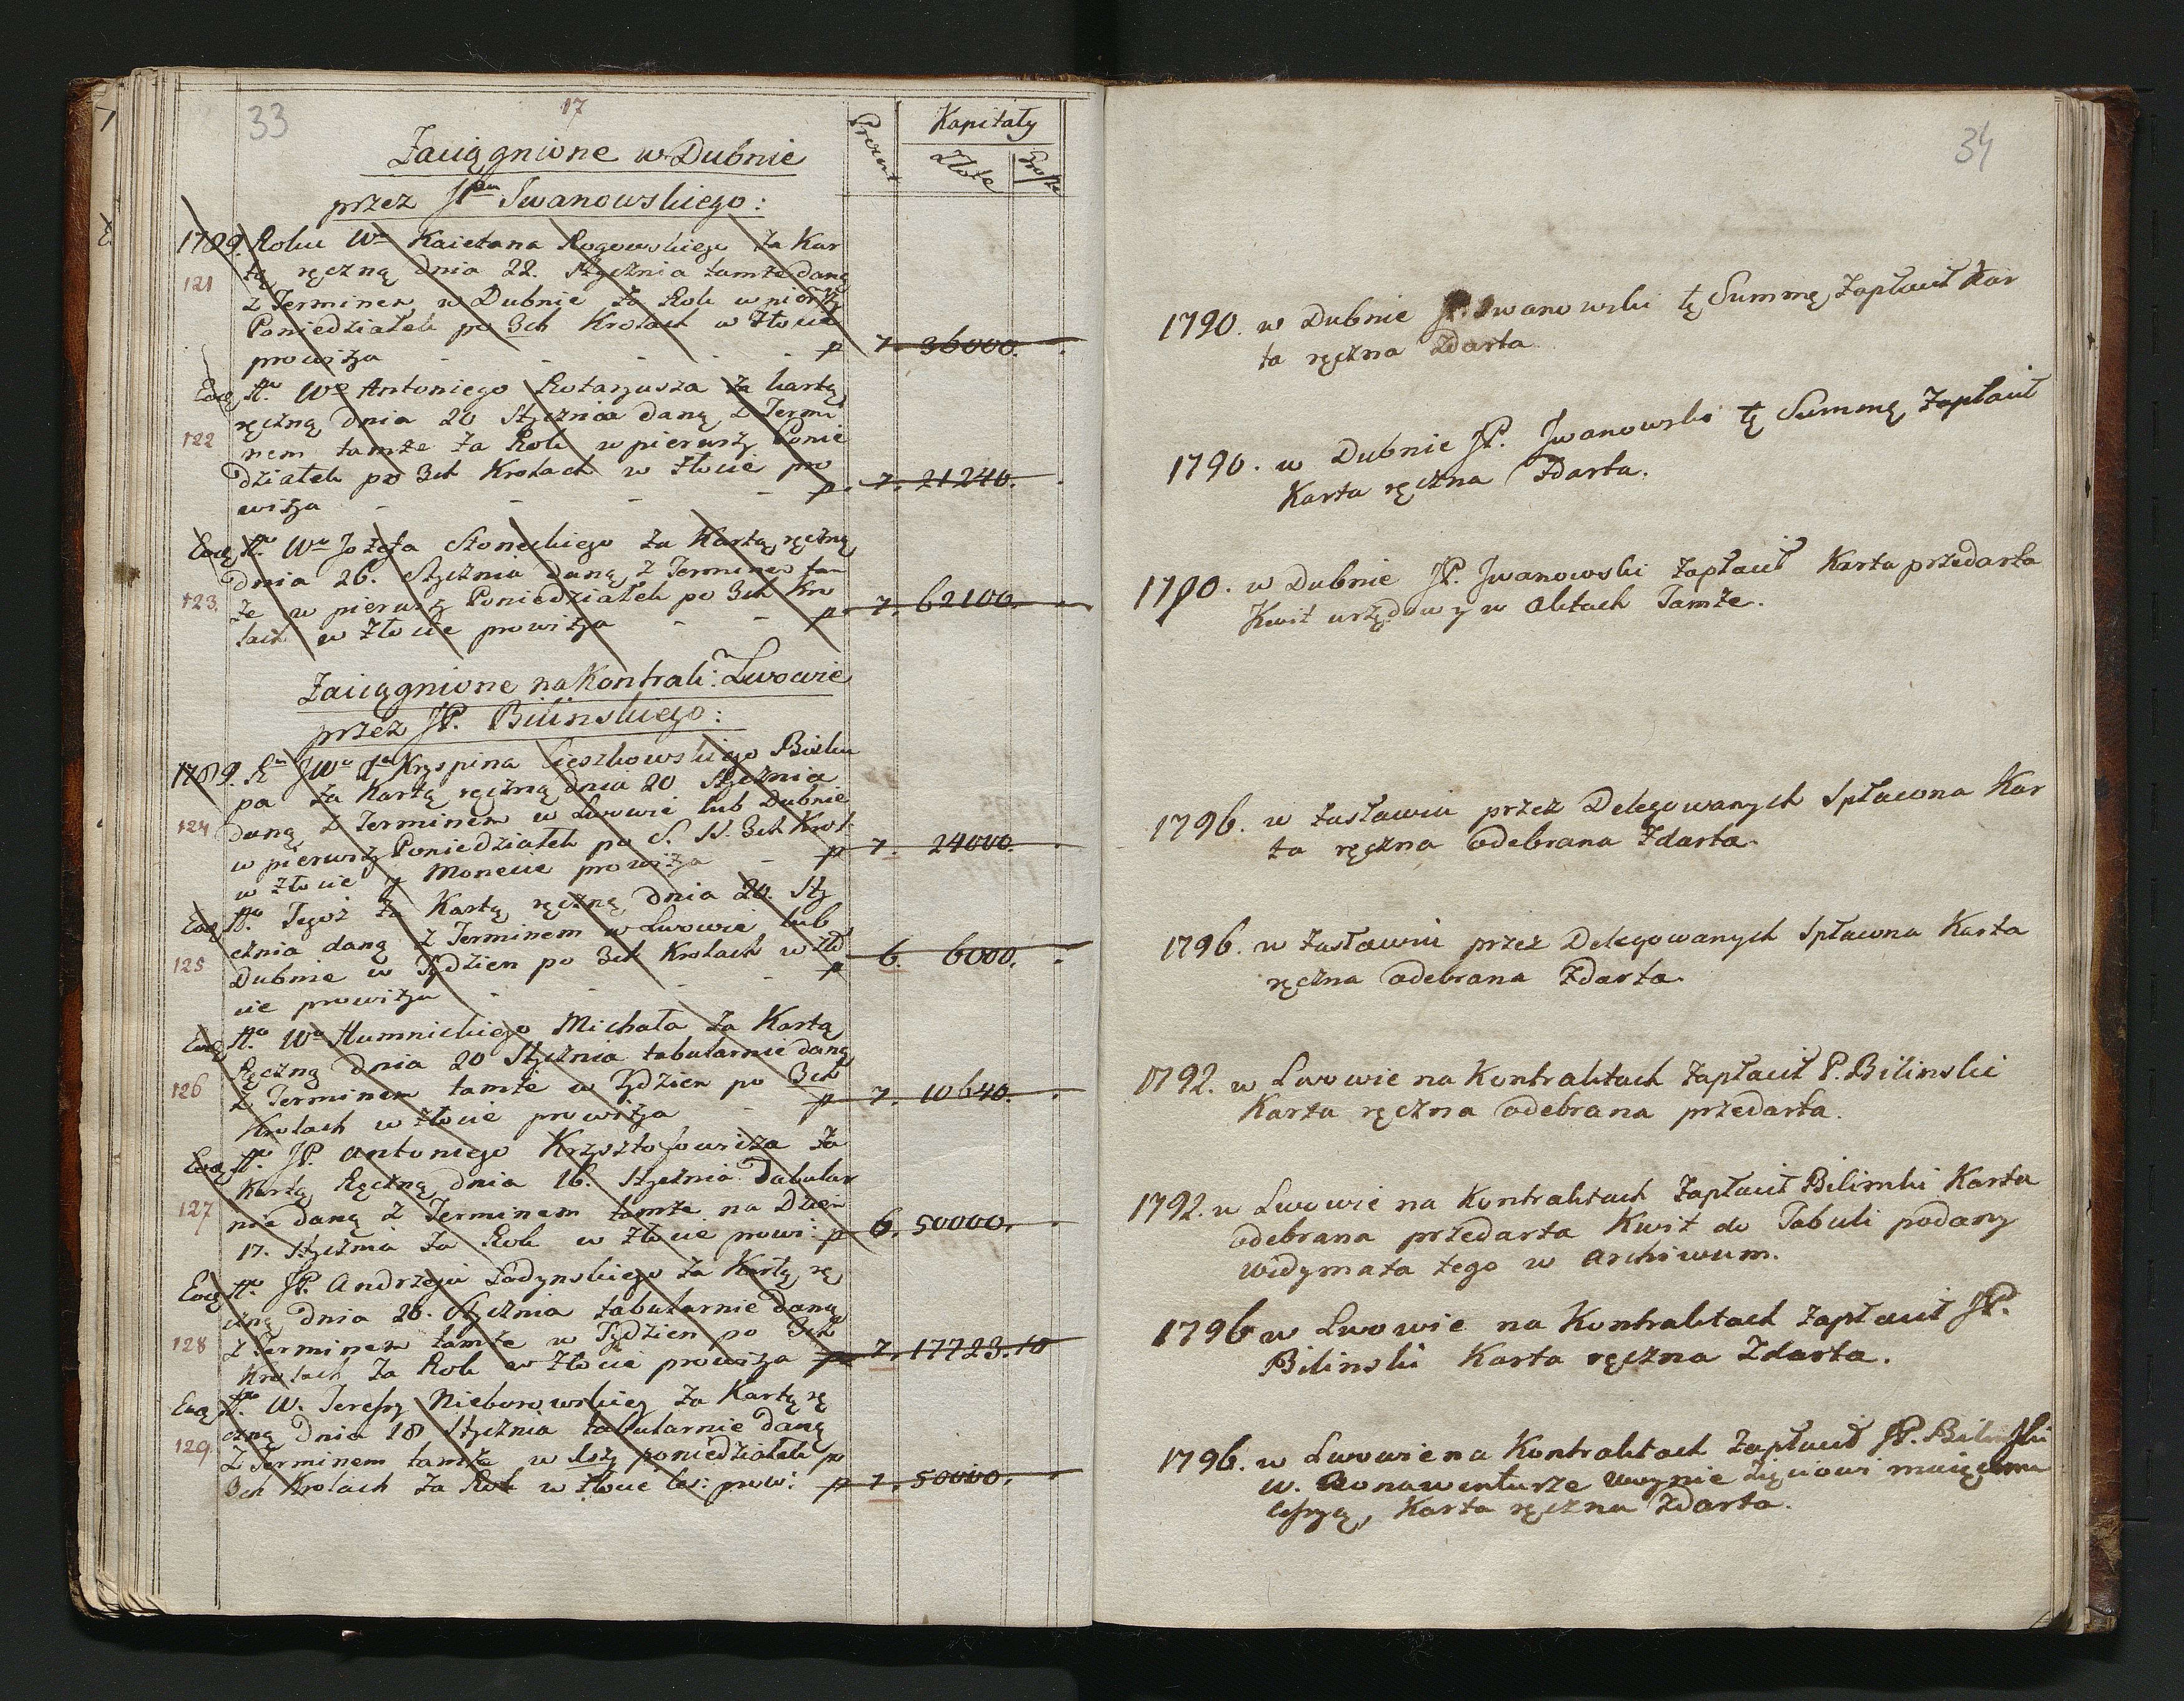 33
17
Procent
Kapitały
Złote
Grosze
Zaciągnione w Dubnie
przez JPna Jwanowskiego:
1789. Roku Wo Kaietana Rogowskiego Za Kar
121
tą ręczną dnia 22. Stycznia tamże daną
z Terminem w Dubnie za Rok w pierszy
Poniedziałek po 3ch Krolach w Złocie
prowizya - - - - - p 7. 36000. .
Eodem Ao Wo Antoniego Rotaryusza Za kartą
122
ręczną dnia 20 Stycznia daną z Termi
nem tamże Za Rok w pierwszy Ponie
działek po 3ch Krolach w złocie pro
wizya - - - - p. 7. 21240. .
Eod Ao Wo Jozefa Słoneckiego Za Kartą ręczną
dnia 26. Stycznia daną z Terminem tam
123.
że w pierwszy Poniedziałek po 3ch Kro
lach w Złocie prowizya - - p 7. 62100. .
Zaciągnione na Kontrak: Lwowie
przez JP. Bilinskiego:
1789. Ro JWo Jo Kryspina Cieszkowskiego Bisku
pa Za Kartą ręczną dnia 20 Stycznia
124
daną z Terminem w Lwowie lub Dubnie
w pierwszy Poniedziałek po S. S. 3ch Krol.
w Złocie y Monecie prowizya - p 7. 24000. .
Eod Ao Tegoż Za Kartą ręczną dnia 20. Sty
cznia daną z Terminem w Lwowie lub
125
Dubnie w Tydzien po 3ch Krolach w Zło
cie prowizya - - - - p 6. 6000. .
Eod Ao Wo Humnickiego Michała Za Kartą
Ręczną dnia 20 Stycznia tabularnie daną
126
z Terminem tamże w Tydzien po 3ch
Krolach w złocie prowizya - p 7. 10640. .
Eod Ao JP. Antoniego Krzysztofowicza Za
Kartą Ręczną dnia 16. Stycznia Tabular
127
nie daną z Terminem tamże na Dzien
17. Stycznia Za Rok w Złocie prowi: p 6. 50000. .
Eod Ao JP. Andrzeja Ładynskiego Za Kartą rę
czną dnia 26. Stycznia tabularnie daną
128
z Terminem tamże w Tydzien po 3ch
Krolach Za Rok w Złocie prowizya p 7. 17723. 10
Eod Ao W. Teressy Nieborowskiey Za Kartą rę
czną dnia 18 Stycznia tabularnie daną
129
z Terminem tamże w 1szy poniedziałek po
3ch Krolach Za Rok w złocie Ces: prow: p 7. 50000. .
34
1790. w Dubnie JP. Jwanowski tę Summę Zapłacił Kar
ta ręczna Zdarta
1790. w Dubnie JP. Jwanowski tę Summę Zapłacił
Karta ręczna Zdarta.
1790. w Dubnie JP. Jwanowski Zapłacił Karta przedarta
Kwit urzędowy w Aktach Tamże.
1796. w Zasławiu przez Delegowanych Spłacona Kar
ta ręczna odebrana Zdarta.
1796. w Zasławiu przez Delegowanych Spłacona Karta
ręczna odebrana Zdarta.
1792. w Lwowie na Kontraktach Zapłacił P. Bilinski
Karta ręczna odebrana przedarta.
1792. w Lwowie na Kontraktach Zapłacił Bilinski Karta
odebrana przedarta Kwit do Tabuli podany
widymata tego w Archiwum.
1796 w Lwowie na Kontraktach Zapłacił JP.
Bilinski Karta ręczna Zdarta.
1796. w Lwowie na Kontraktach Zapłacił JP. Bilinski
W. Bonawenturze Zięciowi maiącemu
Cessyą, Karta ręczna Zdarta.